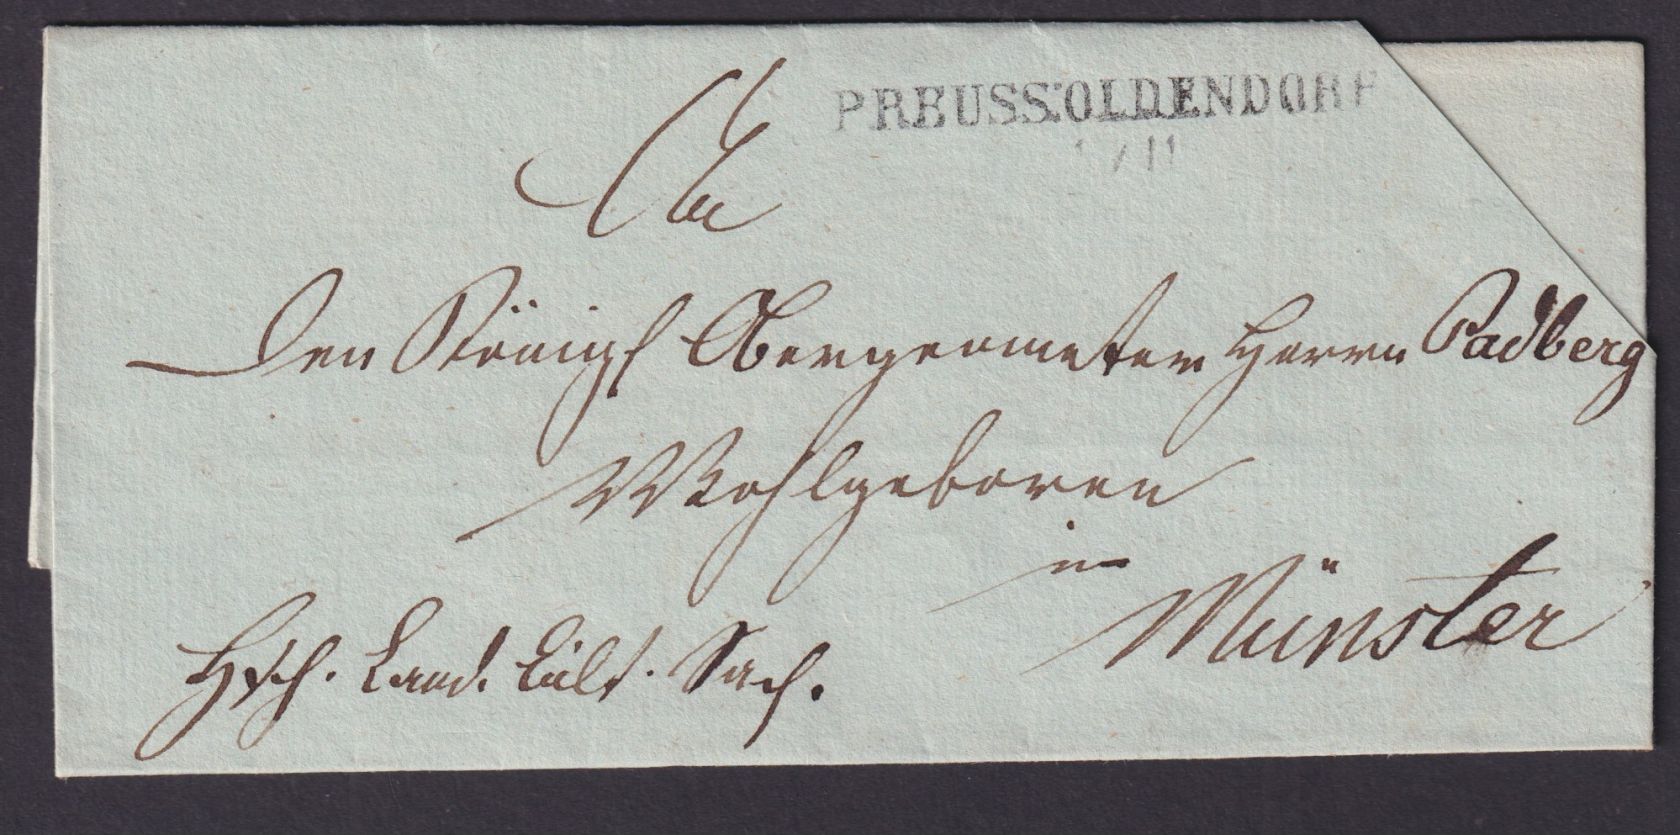 PREUSS:OLDENDORF
An
Den Königl Obergeometer Herrn Padberg
Wohlgeboren
in
Münster
Hsch. Land. Cült. Sach.